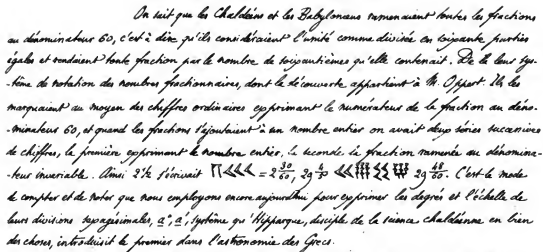 On sait que les Chaldéens et les Babyloniens ramenaient toutes les fractions
au dénominateur 60, c'est à dire qu'ils considéraient l'unité comme divisée en soixante parties
égales et rendaient toute fraction par le nombre de soixantièmes qu'elle contenait. De là leur sys-
-tème de notation des nombres fractionnaires, dont la découverte appartient à M. Oppert. Ils les
marquaient au moyen des chiffres ordinaires exprimant le numérateur de la fraction au déno-
-minateur 60, et quand les fractions s'ajoutaient à un nombre entier on avait deux séries successives
de chiffres, la première exprimant le nombre entier, la seconde la fraction ramenée au dénomina-
-teur invariable. Ainsi 2½ s'écrivait 𒐖𒌍 = 2 30/60, 29 4/5 29 48/60. C'est le mode
de compter et de noter que nous employons encore aujourd'hui pour exprimer les degrés et l'échelle de
leurs divisions sexagésimales, système qu'Hipparque, disciple de la science chaldéenne en bien
des choses, introduisit le premier dans l'astronomie des Grecs.